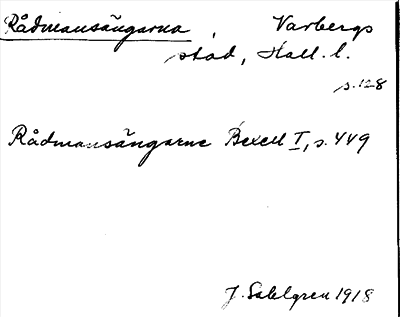 Rådmansängarna, Varbergs
stad, Hall. l.
s. 128
Rådmansängarne Bexell I, s. 449
J. Sahlgren 1918